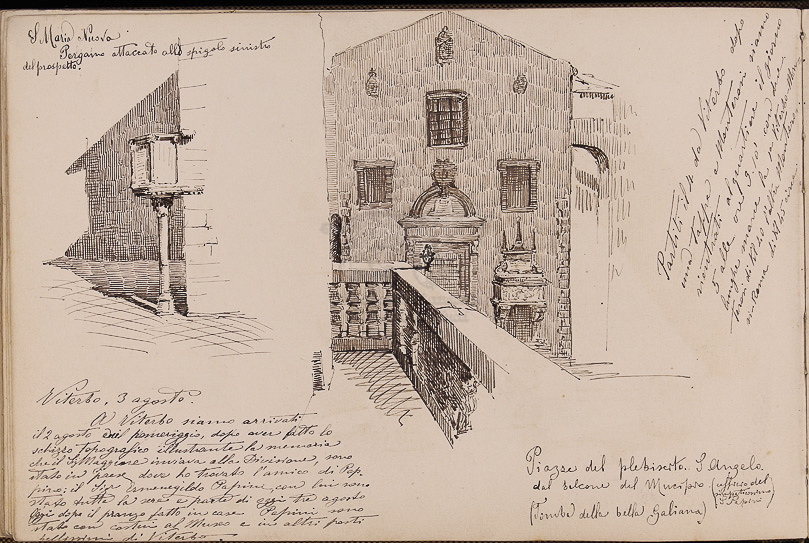 S. Maria Nuova
Pergamo attaccato allo spigolo sinistro
del prospetto.
Viterbo, 3 agosto.
A Viterbo siamo arrivati
il 2 agosto nel pomeriggio, dopo aver fatto lo
schizzo topografico illustrante la memoria
che il S. Maggiore inviava alla Divisione, sono
stato in paese dove ho trovato l'amico di Pep
pino; il Sig. Ermenegildo Papini, con lui sono
stato tutta la sera e parte di oggi tre agosto
Oggi dopo il pranzo fatto in casa Papini sono
stato con al Museo e in altri posti
bellissimi di Viterbo.
Piazza del plebiscito. S. Angelo
dal balcone del Municipio (ufficio del
S. Papini)
(Tomba della bella Galiana)
Partiti il 4 da Viterbo dopo
una tappa a Monterosi siamo
rientrati al quartiere il giorno
5 alle ore 9,10 con due
lunghe marce la
di 40
in Roma di